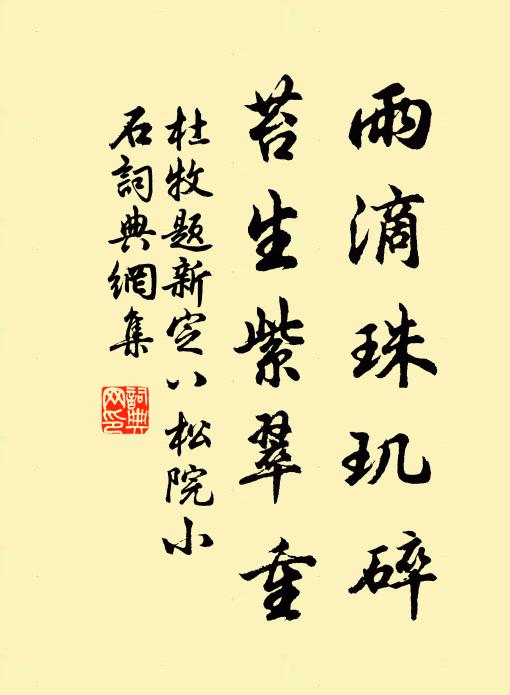 雨滴珠玑碎
苔生紫翠重
杜牧题新定八松院小
石詞典網集
詞典
网印